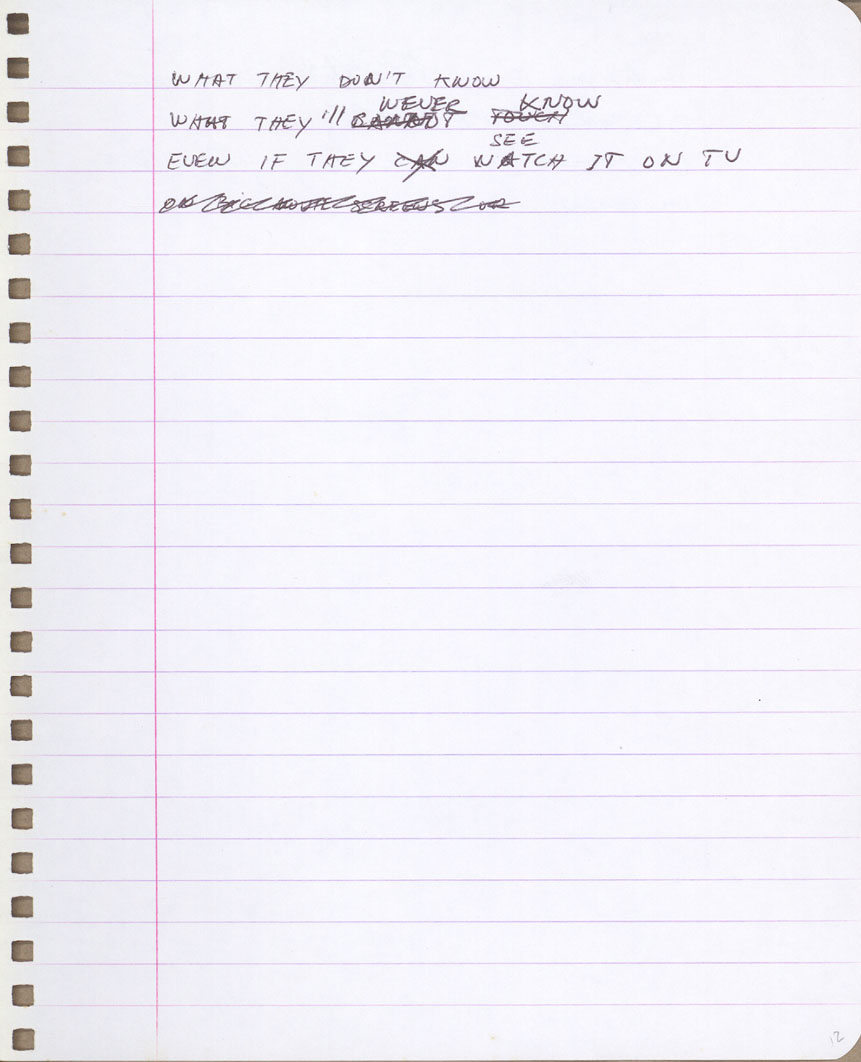 WHAT THEY DON'T KNOW
NEVER KNOW
WHAT THEY'll CANNOT TOUCH
SEE
EVEN IF THEY CAN WATCH IT ON TV
OR BIG MOVIE SCREENS OR
12